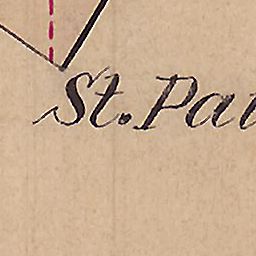 St. Pau